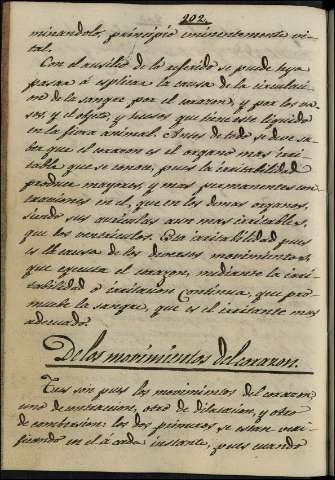 202.
minandolo, principio eminentemente vi-
tal.
Con el ausilio de lo referido se puede ya
pasar á esplicar la causa de la circulaci-
on de la sangre por el corazon, y por los va-
sos, y el objeto, y usos que tiene este liquido
en la fibra animal. Antes de todo se debe sa-
ber que el corazon es el organo mas irri-
table que se conoce, pues la irritabilidad
produce mayores, y mas permanentes con-
tracciones en el, que en los demas organos,
siendo sus auriculas aun mas irritables,
que los ventriculos. Esta irritabilidad pues
es la causa de los diversos movimientos,
que ejecuta el corazon, mediante la irri-
tabilidad ó irritacion continua, que pro-
muebe la sangre, que es el irritante mas
adecuado.
De los movimientos del corazon.
Tres són pues los movimientos del corazon:
uno de contraccion, otro de dilatacion, y otro
de conmocion: los dos primeros se estan veri-
ficando en el á cada instante, pues cuando